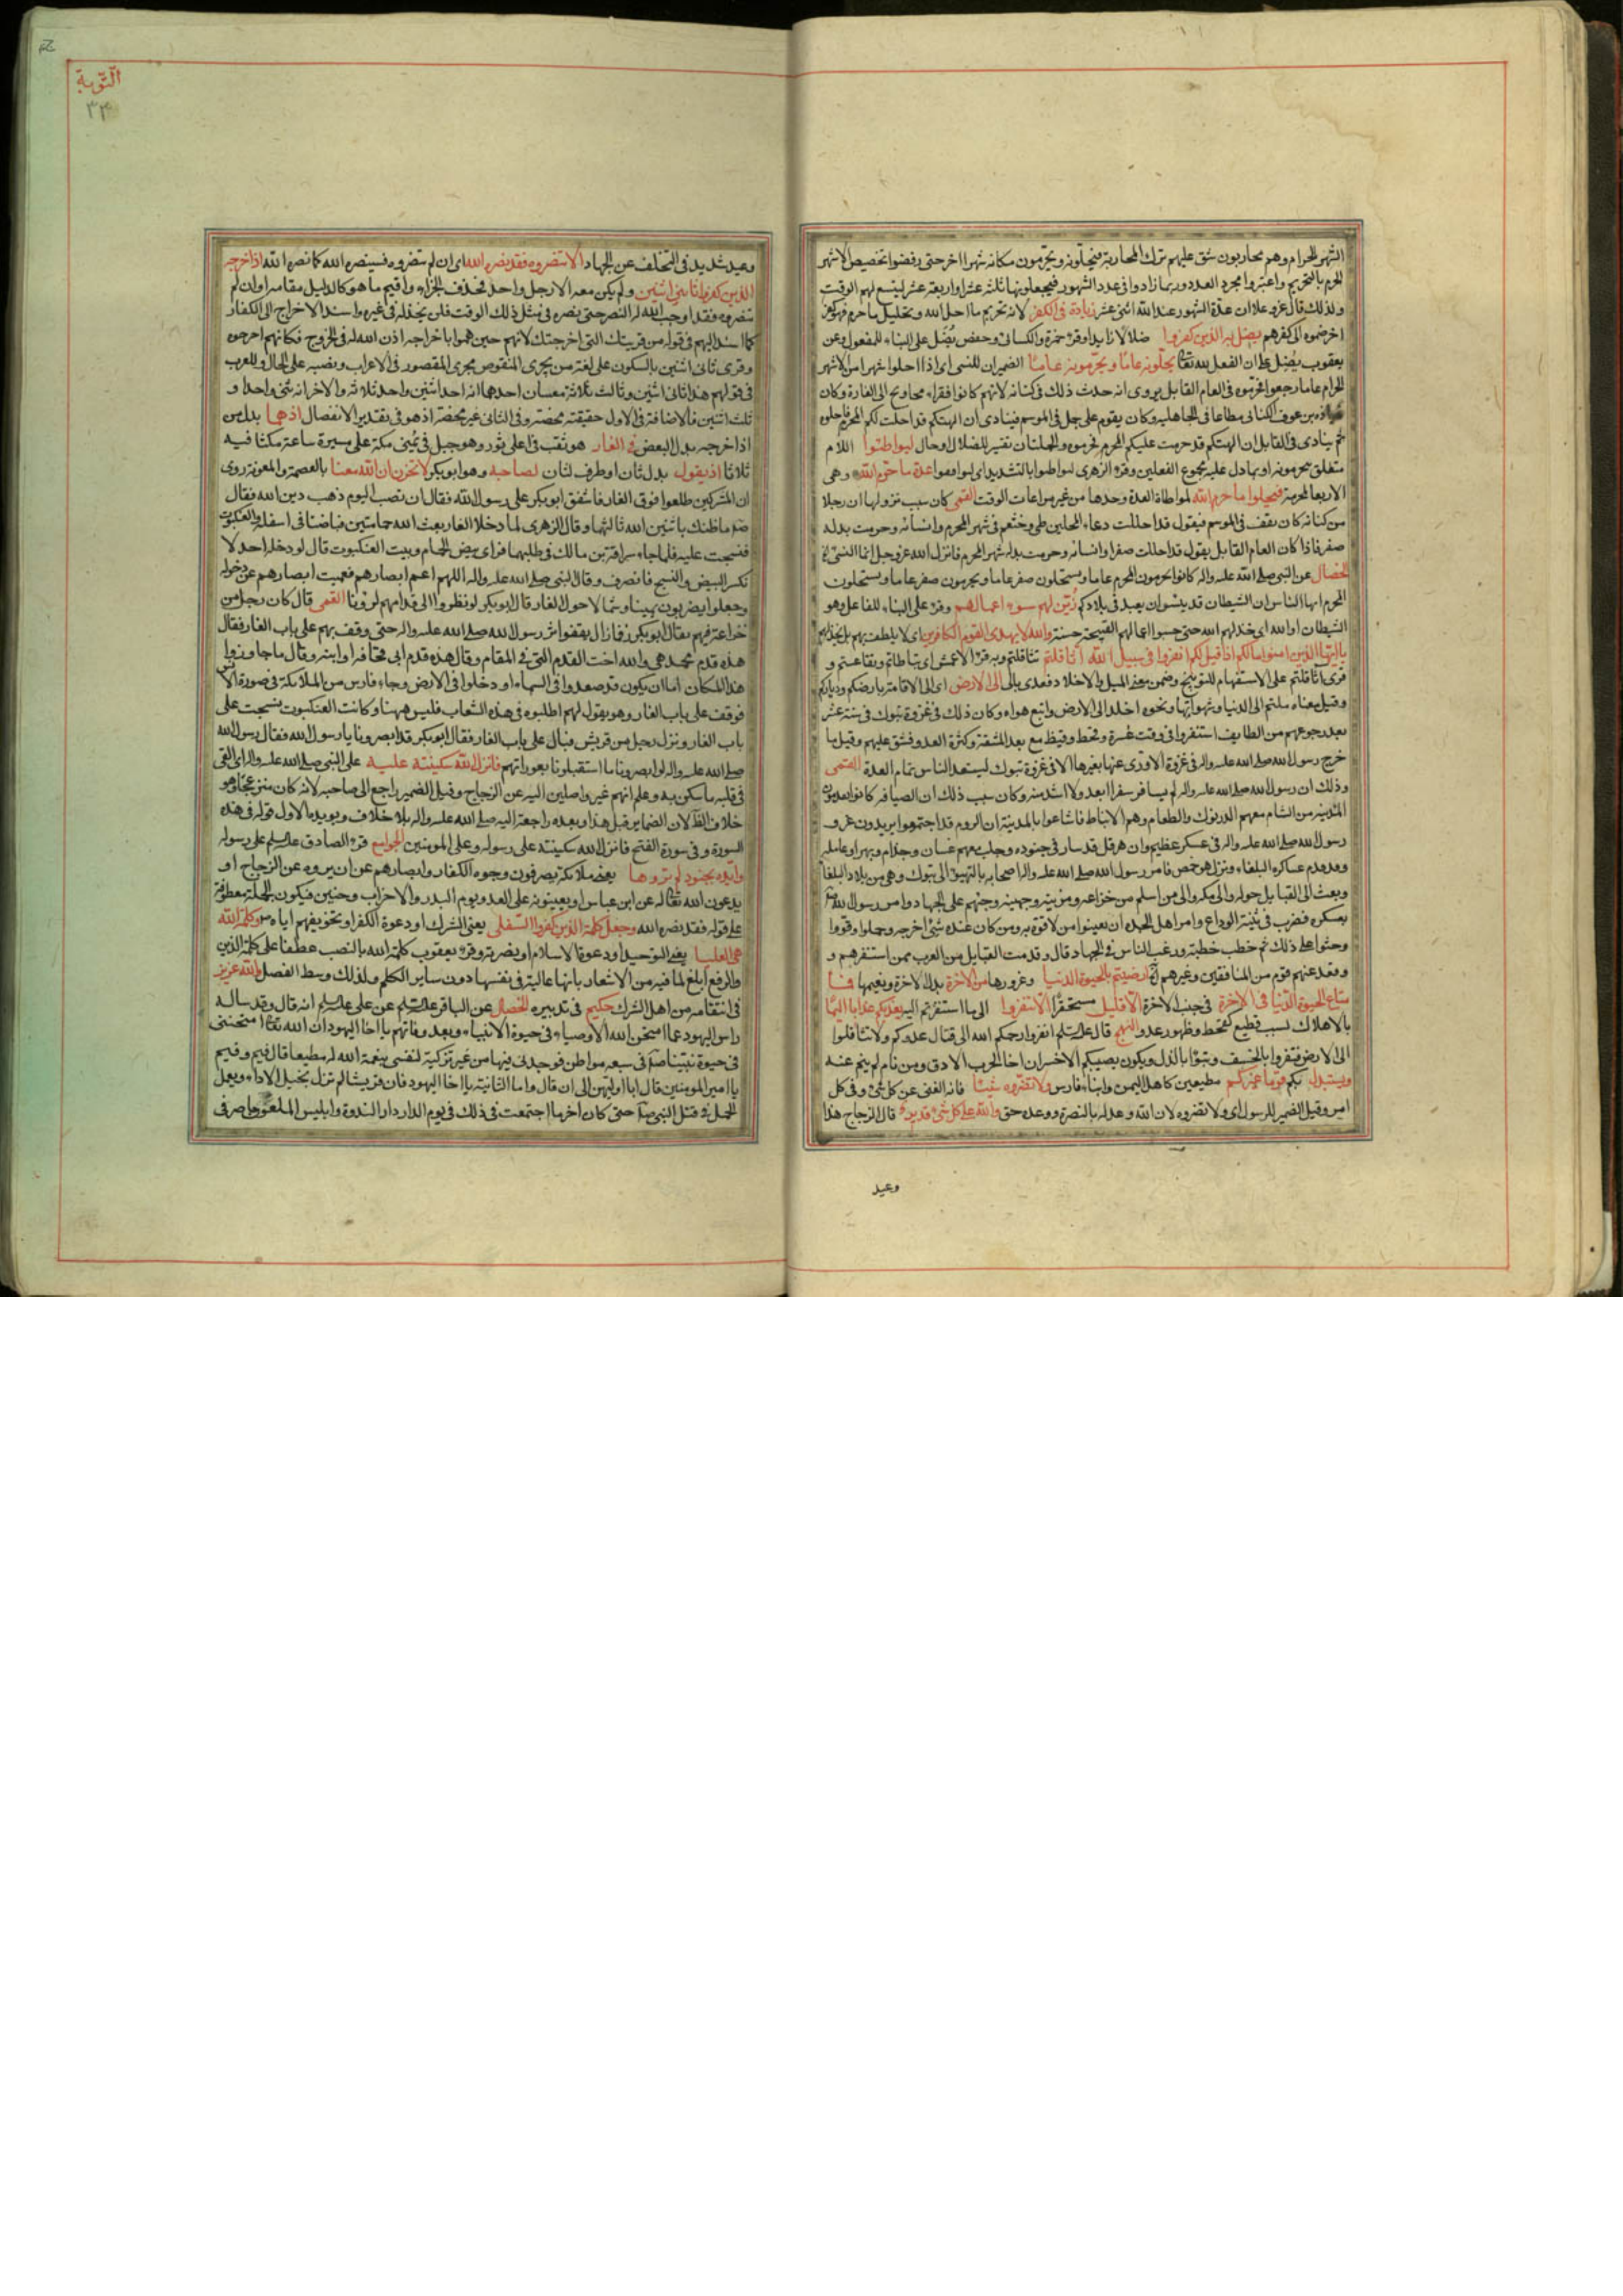 الشهر الحرام وهم محاربون شق عليهم ترك المحاربة فيحلونه ويحرمون مكانه شهرا اخر حتى رفضوا تخصيص الاشهر
الحرم بالتحريم واعتبروا مجرد العدد وربما زادوا في عدد الشهور فيجعلونها ثلثة عشر او اربعة عشر ليتسع لهم الوقت
ولذلك قال عز وعلا ان عدة الشهور عند الله اثنى عشر زيادة في الكفر لانه تحريم ما احل الله وتحليل ما حرم فهو كفر
اخر ضموه الى كفرهم يضل به الذين كفروا ضلالا زايدا وقرء حمزة والكسائى وحفص يضل على البناء للمفعول وعن
يعقوب يضل على ان الفعل لله تعالى يحلونه عاما ويحرمونه عاما الضميران للنسى اى اذا احلوا شهرا من الاشهر
الحرام عاما رجعوا فحرموه في العام القابل يروى انه حدث ذلك في كنانة لانهم كانوا فقراء محاويج الى الغارة وكان
بن عوف الكنانى مطاعا في الجاهلية وكان يقوم على جمل في الموسم فينادى ان الهتكم قد احلت لكم المحرم فاحلوه
ثم ينادى في القابل ان الهتكم قد حرمت عليكم المحرم فحرموه والجملتان تفسير للضلال او حال ليواطئوا اللام
متعلق بيحرمونه او بما دل عليه مجموع الفعلين وقرء الزهرى ليواطيوا بالتشديد اى ليوافقوا عدة ما حرم الله وهى
الاربعة المحرمة فيحلوا ما حرم الله لمواطاة العدة وحدها من غير مراعات الوقت القمى كان سبب نزولها ان رجلا
من كنانة كان يقف في الموسم فيقول قد احللت دماء المحلين طى وخثعم في شهر المحرم وانسأته وحرمت بدله
صفر فاذا كان العام القابل يقول قد احللت صفرا وانسأته وحرمت بدله شهر المحرم فانزل الله عز وجل انما النسئ
الخصال عن النبى صلى الله عليه واله كانوا يحرمون المحرم عاما ويستحلون صفر عاما ويحرمون صفر عاما ويستحلون
المحرم ايها الناس ان الشيطان قد يئس ان يعبد في بلادكم زين لهم سوء اعمالهم وقرء على البناء للفاعل وهو
الشيطان او الله اى خذلهم الله حتى حسبوا اعمالهم القبيحة حسنة والله لا يهدى القوم الكافرين اى لا يلطف بهم بل يخذلهم
يا ايها الذين امنوا ما لكم اذا قيل لكم انفروا في سبيل الله اثاقلتم تثاقلتم وبه قرء الاعمش اى تباطاتم وتقاعستم و
قرئ اثاقلتم على الاستفهام للتوبيخ وضمن معنى الميل والاخلاد فعدى بالى الى الارض اى الى الاقامة بارضكم ودياركم
وقيل معناه ملتم الى الدنيا وشهواتها ونحوه اخلد الى الارض واتبع هواه وكان ذلك في غزوة تبوك في سنة عشر
بعد رجوعهم من الطايف استنفروا في وقت عسرة وقحط وقيظ مع بعد المشقة وكثرة العدو فشق عليهم وقيل ما
خرج رسول الله صلى الله عليه واله في غزوة الا ورى عنها بغيرها الا في غزوة تبوك ليستعد الناس تمام العدة القمى
وذلك ان رسول الله صلى الله عليه واله لم يسافر سفرا ابعد ولا اشد منه وكان سبب ذلك ان الصيافة كانوا يقدمون
المدينة من الشام معهم الدرنوك والطعام وهم الانباط فاشاعوا بالمدينة ان الروم قد اجتمعوا يريدون غزو
رسول الله صلى الله عليه واله في عسكر عظيم وان هرقل قد سار في جنوده وجلب معهم غسان وجذام وبهرا وعاملة
وقد قدم عساكره البلقاء ونزل هو حمص فامر رسول الله صلى الله عليه واله اصحابه بالتهيؤ الى تبوك وهى من بلاد البلقاء
وبعث الى القبايل حوله والى مكة والى من اسلم من خزاعة ومزينة وجهينة وحثهم على الجهاد وامر رسول الله
بعسكره فضرب في ثنية الوداع وامر اهل الجدة ان يعينوا من لا قوة به ومن كان عنده شئ اخرجه وحملوا وقووا
وحثوا على ذلك ثم خطب خطبته ورغب الناس في الجهاد قال وقدمت القبايل من العرب ممن استنفرهم و
وقعد عنهم قوم من المنافقين وغيرهم ارضيتم بالحيوة الدنيا وغرورها من الاخرة بدل الاخرة ونعيمها فما
متاع الحيوة الدنيا في الاخرة في جنب الاخرة الا قليل مستحقر الا تنفروا الى ما استنفرتم اليه يعذبكم عذابا اليما
بالاهلاك بسبب فظيع كقحط وظهور عدو النهج قال عليه السلام انفروا رحمكم الله الى قتال عدوكم ولا تثاقلوا
الى الارض فتقروا بالخسف وتبؤا بالذل ويكون نصيبكم الاخس ان اخا الحرب الارق ومن نام لم ينم عنه
ويستبدل بكم قوما غيركم مطيعين كاهل اليمن وابناء فارس ولا تضروه شيئا فانه الغنى عن كل شئ وفي كل
امر وقيل الضمير للرسول اى ولا تضروه لان الله وعد له بالنصرة ووعده حق والله على كل شئ قدير قال الزجاج هذا
وعيد
التوبة
٣٣
وعيد شديد في التخلف عن الجهاد الا تنصروه فقد نصره الله اى ان لم تنصروه فسينصره الله كما نصره الله اذ اخرجه
الذين كفروا ثانى اثنين ولم يكن معه الا رجل واحد فحذف الجزاء واقيم ما هو كالدليل مقامه او ان لم
تنصروه فقد اوجب الله له النصر حتى نصره في مثل ذلك الوقت فلن يخذله في غيره واسند الاخراج الى الكفار
كما اسند اليهم في قوله من قريتك التى اخرجتك لانهم حين هموا باخراجه اذن الله له في الخروج فكانهم اخرجوه
وقرئ ثانى اثنين بالسكون على لغة من يجرى المنقوص مجرى المقصور في الاعراب ونصبه على الحال وللعرب
في قولهم هذا ثانى اثنين وثالث ثلاثة معنيان احدهما انه احد اثنين واحد ثلاثة والاخر انه ثنى واحدا و
ثلث اثنين فالاضافة في الاول حقيقة محضة وفي الثانى غير محضة اذ هو في تقدير الانفصال اذ هما بدل من
اذ اخرجه بدل البعض في الغار هو ثقب في اعلى ثور وهو جبل في يمنى مكة على مسيرة ساعة مكثا فيه
ثلاثا اذ يقول بدل ثان او ظرف لثان لصاحبه وهو ابو بكر لا تحزن ان الله معنا بالعصمة والمعونة روى
ان المشركين طلعوا فوق الغار فاشفق ابو بكر على رسول الله فقال ان نصب اليوم ذهب دين الله فقال
ما ظنك باثنين الله ثالثهما وقال الزهرى لما دخلا الغار بعث الله حمامتين فباضتا في اسفله والعنكبوت
فنسجت عليه فلما جاء سراقة بن مالك في طلبهما فراى بيض الحمام وبيت العنكبوت قال لو دخله احد لا
نكسر البيض والنسج فانصرف وقال النبى صلى الله عليه واله اللهم اعم ابصارهم فعميت ابصارهم عن دخوله
وجعلوا يضربون يمينا وشمالا حول الغار قال ابو بكر لو نظروا الى قدامهم لرؤنا القمى قال كان رجل من
خزاعة فيهم يقال ابو بكر زفا زال يقفوا اثر رسول الله صلى الله عليه واله حتى وقف بهم على باب الغار فقال
هذه قدم محمد هى والله اخت القدم التى في المقام وقال هذه قدم ابى قحافة او ابنه وقال ما جاوزوا
هذا المكان اما ان يكون قد صعدوا في السماء او دخلوا في الارض وجاء فارس من الملائكة في صورة الانس
فوقف على باب الغار وهو يقول لهم اطلبوه في هذه الشعاب فليس ههنا وكانت العنكبوت نسجت على
باب الغار ونزل رجل من قريش فبال على باب الغار فقال ابو بكر قد ابصرونا يا رسول الله فقال رسول الله
صلى الله عليه واله لو ابصرونا ما استقبلونا بعوراتهم فانزل الله سكينته عليه على النبى صلى الله عليه واله اى القى
في قلبه ما سكن به وعلم انهم غير واصلين اليه عن الزجاج وقيل الضمير راجع الى صاحبه لانه كان منزعجا وهو
خلاف الظ لان الضماير قبل هذا وبعده راجعة اليه صلى الله عليه واله بلا خلاف ويويد الاول قوله في هذه
السورة وفي سورة الفتح فانزل الله سكينته على رسوله وعلى المومنين الجوامع قرء الصادق عليه السلم على رسوله
وايده بجنود لم تروها بعض ملائكة يصرفون وجوه الكفار وابصارهم عن ان يروه عن الزجاج او
يدعون الله تعالى له عن ابن عباس او يعينونه على العدو يوم البدر والاحزاب وحنين فيكون الجملة معطوفة
على قوله فقد نصره الله وجعل كلمة الذين كفروا السفلى يعنى الشرك او دعوة الكفر او تخويفهم اياه وكلمة الله
هى العليا يعنى التوحيد او دعوة الاسلام او نصرته وقرء يعقوب كلمة الله بالنصب عطفا على كلمة الذين
والرفع ابلغ لما فيه من الاشعار بانها عالية في نفسها دون ساير الكلم ولذلك وسط الفصل والله عزيز
في انتقامه من اهل الشرك حكيم في تدبيره الخصال عن الباقر عليه السلم عن على عليه السلم انه قال وقد ساله
راس اليهود عما امتحن الله الاوصياء في حيوة الانبياء وبعد وفاتهم يا اخا اليهود ان الله تعالى امتحننى
في حيوة نبينا في سبعة مواطن فوجدنى فيها من غير تزكية لنفسى بنعمة الله له مطيعا قال فيم وفيم
يا امير المومنين قال اما اوليهن الى ان قال واما الثانية يا اخا اليهود فان قريشا لم تزل تخيل الاراء ويعمل
الحيل في قتل النبى حتى كان اخر ما اجتمعت في ذلك في يوم الدار دار الندوة وابليس الملعون حاضر في